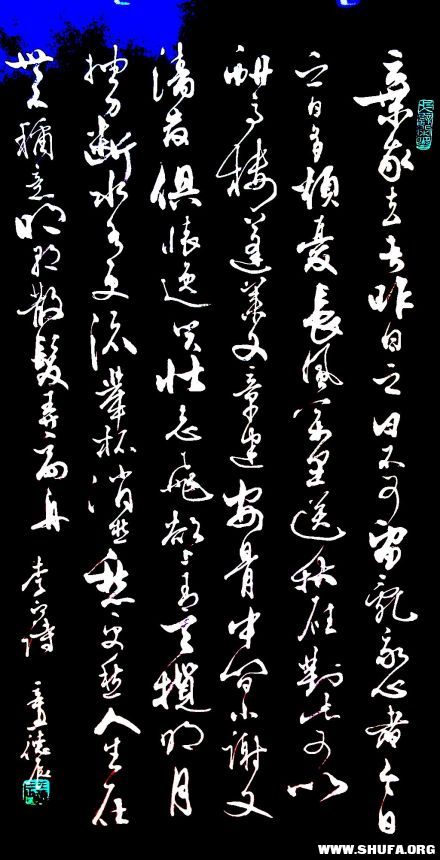 棄我去者昨日之日不可留亂我心者今日
之日多煩憂長風萬里送秋雁對此可以
酣高樓蓬萊文章建安骨中間小謝又
清發俱懷逸興壯思飛欲上青天攬明月
抽刀斷水水更流舉杯消愁愁更愁人生在
世不稱意明朝散髮弄扁舟
李白詩
WWW.SHUFA.ORG